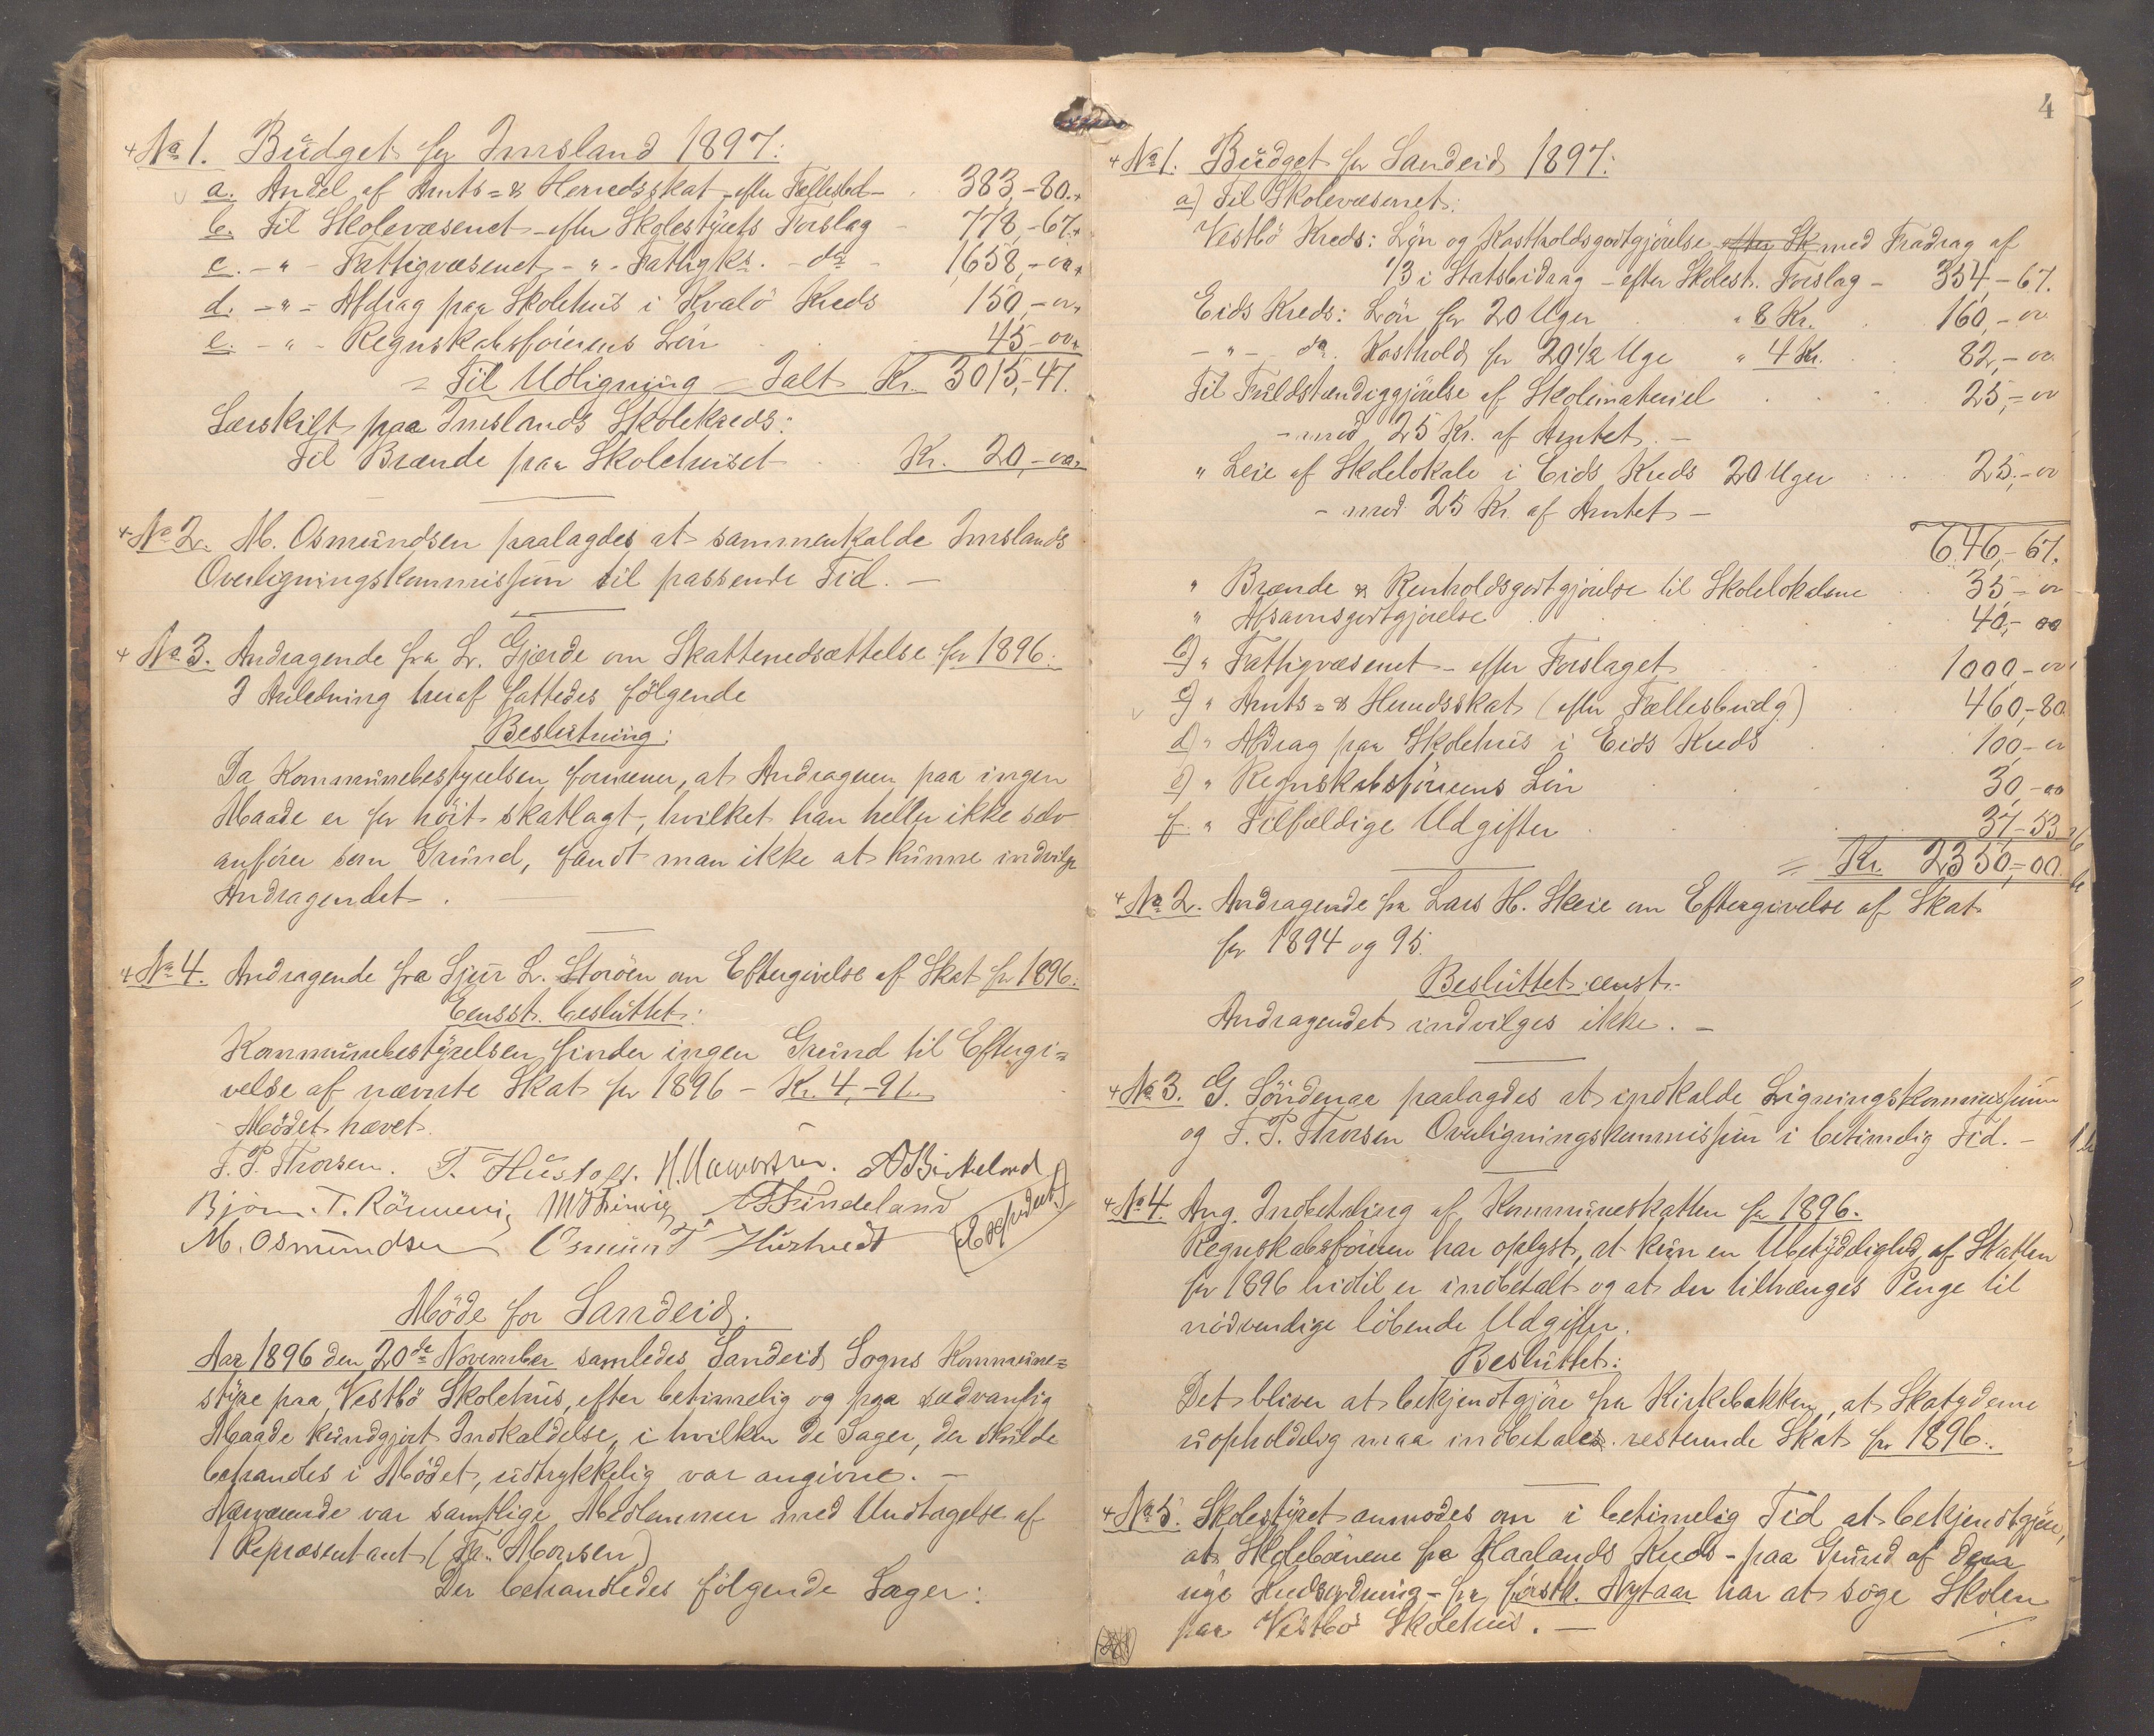 No 1. Budget for Imsland 1897:
a. Andel af Amts= & Herredsskat efter Fællesbud- 383,-80.
b. Til Skolevæsenet - efter Skolestyrets Forslag - 778,-67.
c. - " - Fattigvæsenet - " - Fattigks. - do - 1,658,-00
d. - " - Afdrag paa Skolehus i Kvalö Kreds 150,-00
e. - " - Regnskabsförerens Lön 45-00
= Til Udligning - Ialt Kr. 3015,-47.
Særskilt paa Imslands Skolekreds:
Til Brænde paa Skolehuset Kr. 20,-00
No 2. M. Osmundsen paalagdes at sammenkalde Imslands
Overligningskommission til passende Tid. -
No 3. Andragende fra L. Gjærde om Skattenedsættelse for 1896.
I Anledning heraf fattedes fölgende
Beslutning:
Da Kommunebestyrelsen formener, at Andrageren paa ingen
Maade er for höit skatlagt, hvilket han heller ikke selv
anförer som Grund, fandt man ikke at kunne indvilge
Andragendet.
No 4. Andragende fra Sjur L. Storöen om Eftergivelse af Skat for 1896.
Eensst. besluttet:
Kommunebestyrelsen finder ingen Grund til Eftergi=
velse af nævnte Skat for 1896 - Kr. 4,-91.
Mödet hævet.
T. P. Thorsen. T. Hustoft. A Birkeland
Björn. T. Rönnevig
M. Osmundsen Osmund T Hustvedt
Möde for Sandeid.
Aar 1896 den 20de November samledes Sandeid Sogns Kommune=
styre paa Vestbö Skolehus, efter betimelig og paa sædvanlig
Maade kundgjort Indkaldelse, i hvilken de Sager, der skulde
behandles i Mödet, udtrykkelig var angivne. -
Nærværende var samtlige Medlemmer med Undtagelse af
1 Repræsentant (Fr. Monsen)
Der behandledes fölgende Sager:
4
No 1. Budget for Sandeid 1897:
a) Til Skolevæsenet:
Vestbö Kreds: Lön og Kostholdsgodtgjörelse efter Sk med Fradrag af
1/3 i Statsbidrag - efter Skolest. Forslag - 354,-67.
Eids Kreds: Lön for 20 Uger " 8 Kr. 160,-00
- " - do. Kosthold for 20 1/2 Uge " 4 Kr. 82,-00
Til Fuldstændiggjörelse af Skolemateriel 25,-00
- med 25 Kr. af Amtet. -
" Leie af Skolelokale i Eids Kreds 20 Uger 25,-00
- med 25 Kr. af Amtet -
646,-67.
" Brænde & Renholdsgodtgjörelse til Skolelokalerne 35-00
" Afsavnsgodtgjörelse 40,-00
b) " Fattigvæsenet - efter Forslaget 1000,-00
c) " Amts= & Herredsskat (efter Fællesbudg) 460,-80
d) " Afdrag paa Skolehus i Eids Kreds 100,-00
e) " Regnskabsförerens Lön 30,-00
f. " Tilfældige Udgifter 37-53
= Kr. 2350,-00.
No 2. Andragende fra Lars H. Skeie om Eftergivelse af Skat
for 1894 og 95.
Besluttet eenst.
Andragendet indvilges ikke. -
No 3. G. Söndenaa paalagdes at indkalde Ligningskommission
og T. P. Thorsen Overligningskommission i betimelig Tid. -
No 4. Ang. Indbetaling af Kommuneskatten for 1896.
Regnskabsföreren har oplyst, at kun en Ubetydelighed af Skatten
for 1896 hidtil er indbetalt og at der tiltrænges Penge til
nödvendige löbende Udgifter.
Besluttet:
Det bliver at bekjendtgjöre fra Kirkebakken, at Skatyderne
uopholdelig maa indbetales resterende Skat for 1896.
No 5. Skolestyret anmodes om i betimelig Tid at bekjendtgjöre,
at Skolebörnene fra Harlands Kreds - paa Grund af den
nye Kredsordning - fra förstk. Nytaar har at söge Skolen
paa Vestbö Skolehus. -